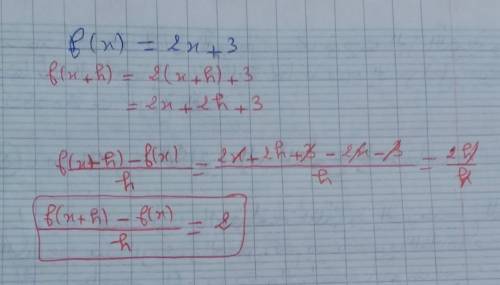 f(x) = 2x+3
f(x+h) = 2(x+h)+3
= 2x+2h+3
(f(x+h)-f(x))/h = (2x+2h+3-2x-3)/h = 2h/h
(f(x+h)-f(x))/h = 2